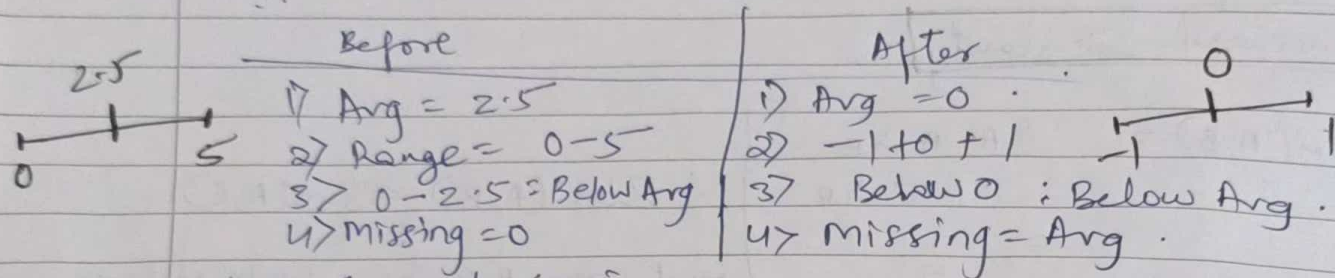 Before
After
2.5
0
5
1) Avg = 2.5
2) Range = 0-5
3) 0-2.5 = Below Avg
4) Missing = 0
1) Avg = 0
2) -1 to +1
3) Below 0 : Below Avg.
4) Missing = Avg.
0
-1
1